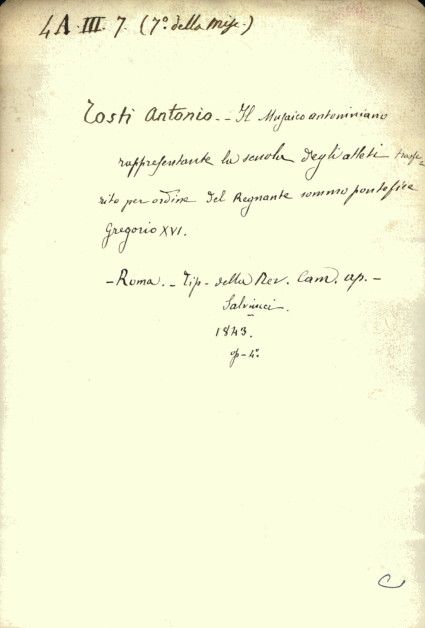 4 A. III. 7. (7.° della Misc.)
Tosti Antonio. - Il Musaico antoniniano
rappresentante la scuola degli atleti trasfe=
rito per ordine del Regnante sommo pontefice
Gregorio XVI.
- Roma. - Tip. della Rev. Cam. ap. -
Salviucci.
1843.
4.°
C